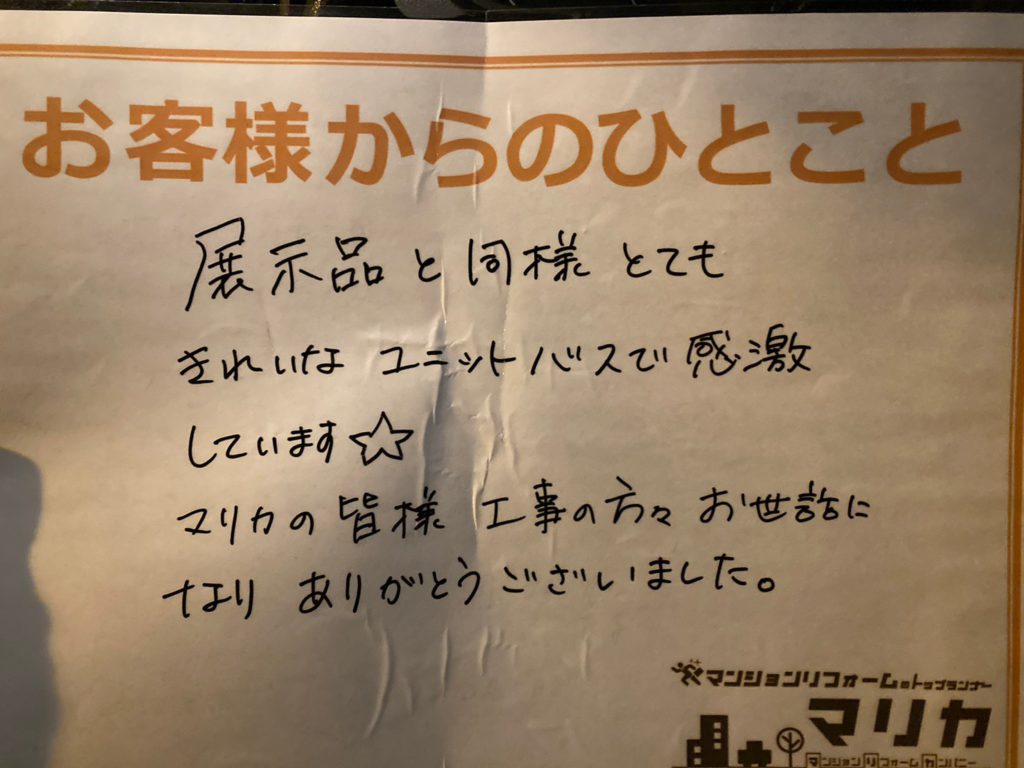 お客様からのひとこと
展示品と同様とても
きれいなユニットバスで感激
しています☆
マリカの皆様 工事の方々 お世話に
なり ありがとうございました。
マンションリフォームのトップランナー
マリカ
マンションリフォームカンパニー